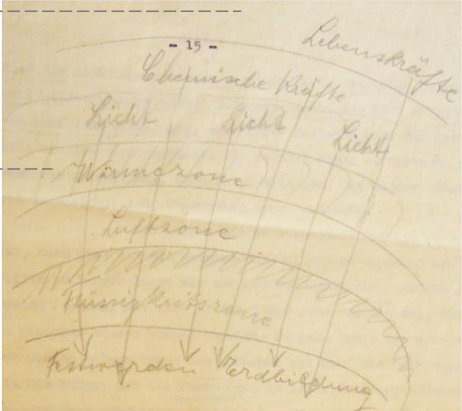 - 15 -
Lebenskräfte
Chemische Kräfte
Licht Licht Licht
Wärmezone
Luftzone
Flüssigkeitszone
Erdbildung